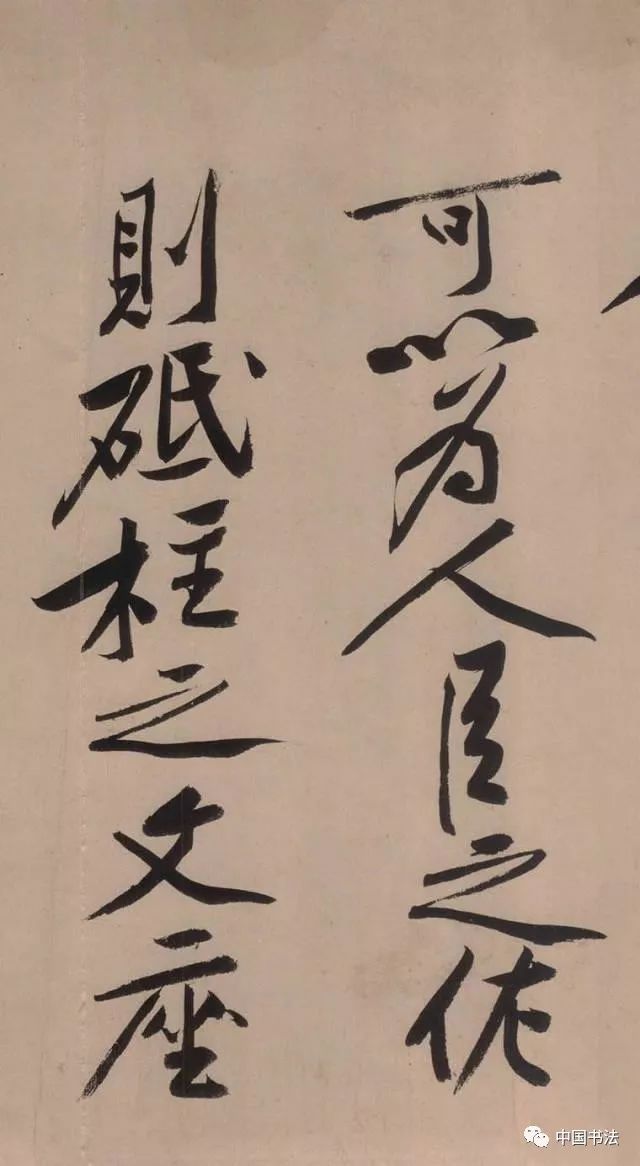 可以為人臣之佐
則砥柱之文座
中国书法